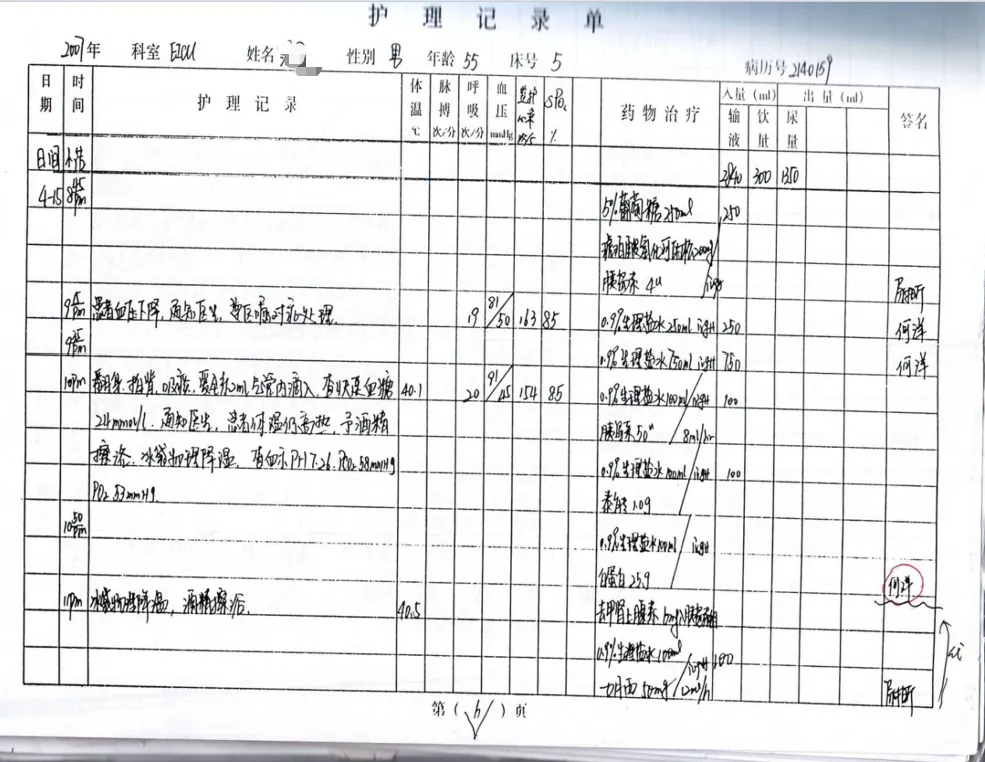 护理记录单
2007年 科室 EICU 姓名 性别 男 年龄 55 床号 5 病历号 2140159
日期 时间 护理记录 体温 ℃ 脉搏 次/分 呼吸 次/分 血压 mmHg 监护心率 次/分 SPO₂ % 药物治疗 入量(ml) 输液 饮量 出量(ml) 尿量 签名
日间 小结 2840 300 1350
4-15 8 45 pm 5%葡萄糖 250ml 250
琥珀酸氢化可的松 200mg
胰岛素 4u / ivgtt
9 15 pm 患者血压下降,通知医生,遵医嘱对症处理. 19 81/50 163 85 0.9%生理盐水 250ml ivgtt 250 何洋
9 pm 0.9%生理盐水 750ml ivgtt 750 何洋
10pm 翻身,拍背,吸痰, 2ml 管内滴入, 查快速血糖 40.1 20 91/45 154 85 0.9%生理盐水 100ml / ivgtt 100
24mmol/L. 通知医生, 患者体温仍高热, 予酒精 胰岛素 50u / 8ml/hr
擦浴, 冰袋物理降温, 查血示 PH 7.26. PCO₂ 58mmHg 0.9%生理盐水 100ml / ivgtt 100
PO₂ 83mmHg. 泰能 1.0g
10 50 pm 0.9%生理盐水 100ml / ivgtt
白蛋白 25.9 何洋
11pm 冰袋物理降温, 酒精擦浴. 40.5 去甲肾上腺素 6mg
0.9%生理盐水 100ml / ivgtt 100
50mg / 12ml/h
第(6)页